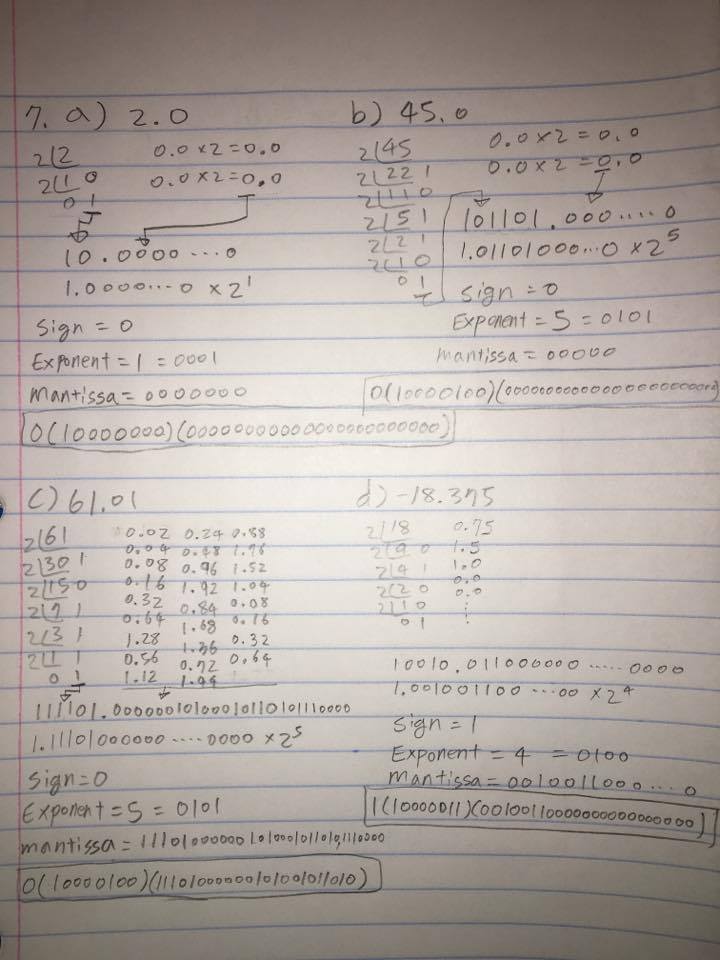 7. a) 2.0
2 2
0.0 x 2 = 0.0
2 1 0
0.0 x 2 = 0.0
0 1
10.0000 ... 0
1.0000 ... 0 x 2^1
Sign = 0
Exponent = 1 = 0001
Mantissa = 0000000
0(10000000)(00000000000000000000000)
b) 45.0
2 45
0.0 x 2 = 0.0
2 22 1
0.0 x 2 = 0.0
2 11 0
2 5 1
101101.000 ..... 0
2 2 1
1.01101000...0 x 2^5
2 1 0
0 1
Sign = 0
Exponent = 5 = 0101
mantissa = 00000
0(10000100)(00000000000000000000000)
c) 61.01
2 61
2 30 1
2 15 0
2 7 1
2 3 1
2 1 1
0 1
0.02 0.24 0.88
0.04 0.48 1.76
0.08 0.96 1.52
0.16 1.92 1.04
0.32 0.84 0.08
0.64 1.68 0.16
1.28 1.36 0.32
0.56 0.72 0.64
1.12 1.44
111101.00000010100010110101110000
1.11101000000 ..... 0000 x 2^5
Sign=0
Exponent = 5 = 0101
mantissa = 1110100000010100010110101110000
0(10000100)(11101000000101001011010)
d) -18.375
2 18
2 9 0
2 4 1
2 2 0
2 1 0
0 1
0.75
1.5
1.0
0.0
0.0
10010.011000000 ..... 0000
1.001001100 ....00 x 2^4
Sign = 1
Exponent = 4 = 0100
Mantissa = 0010011000 ... 0
1(10000011)(00100110000000000000000)